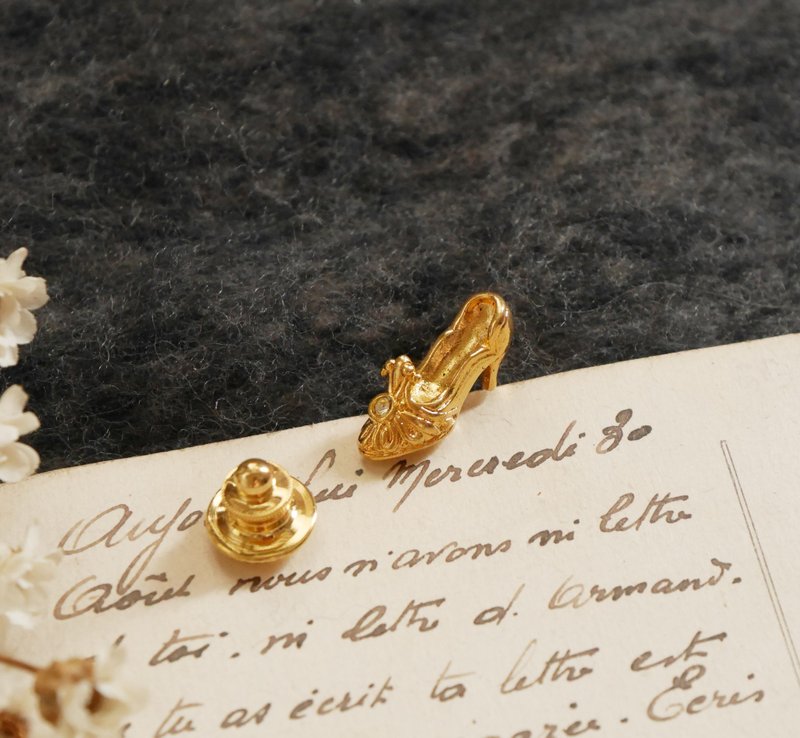 Aujo lui Mercredi 30
Août nous n'avons ni lettre
toi. ni lettre d. Armand.
tu as écrit ta lettre est
Ecris